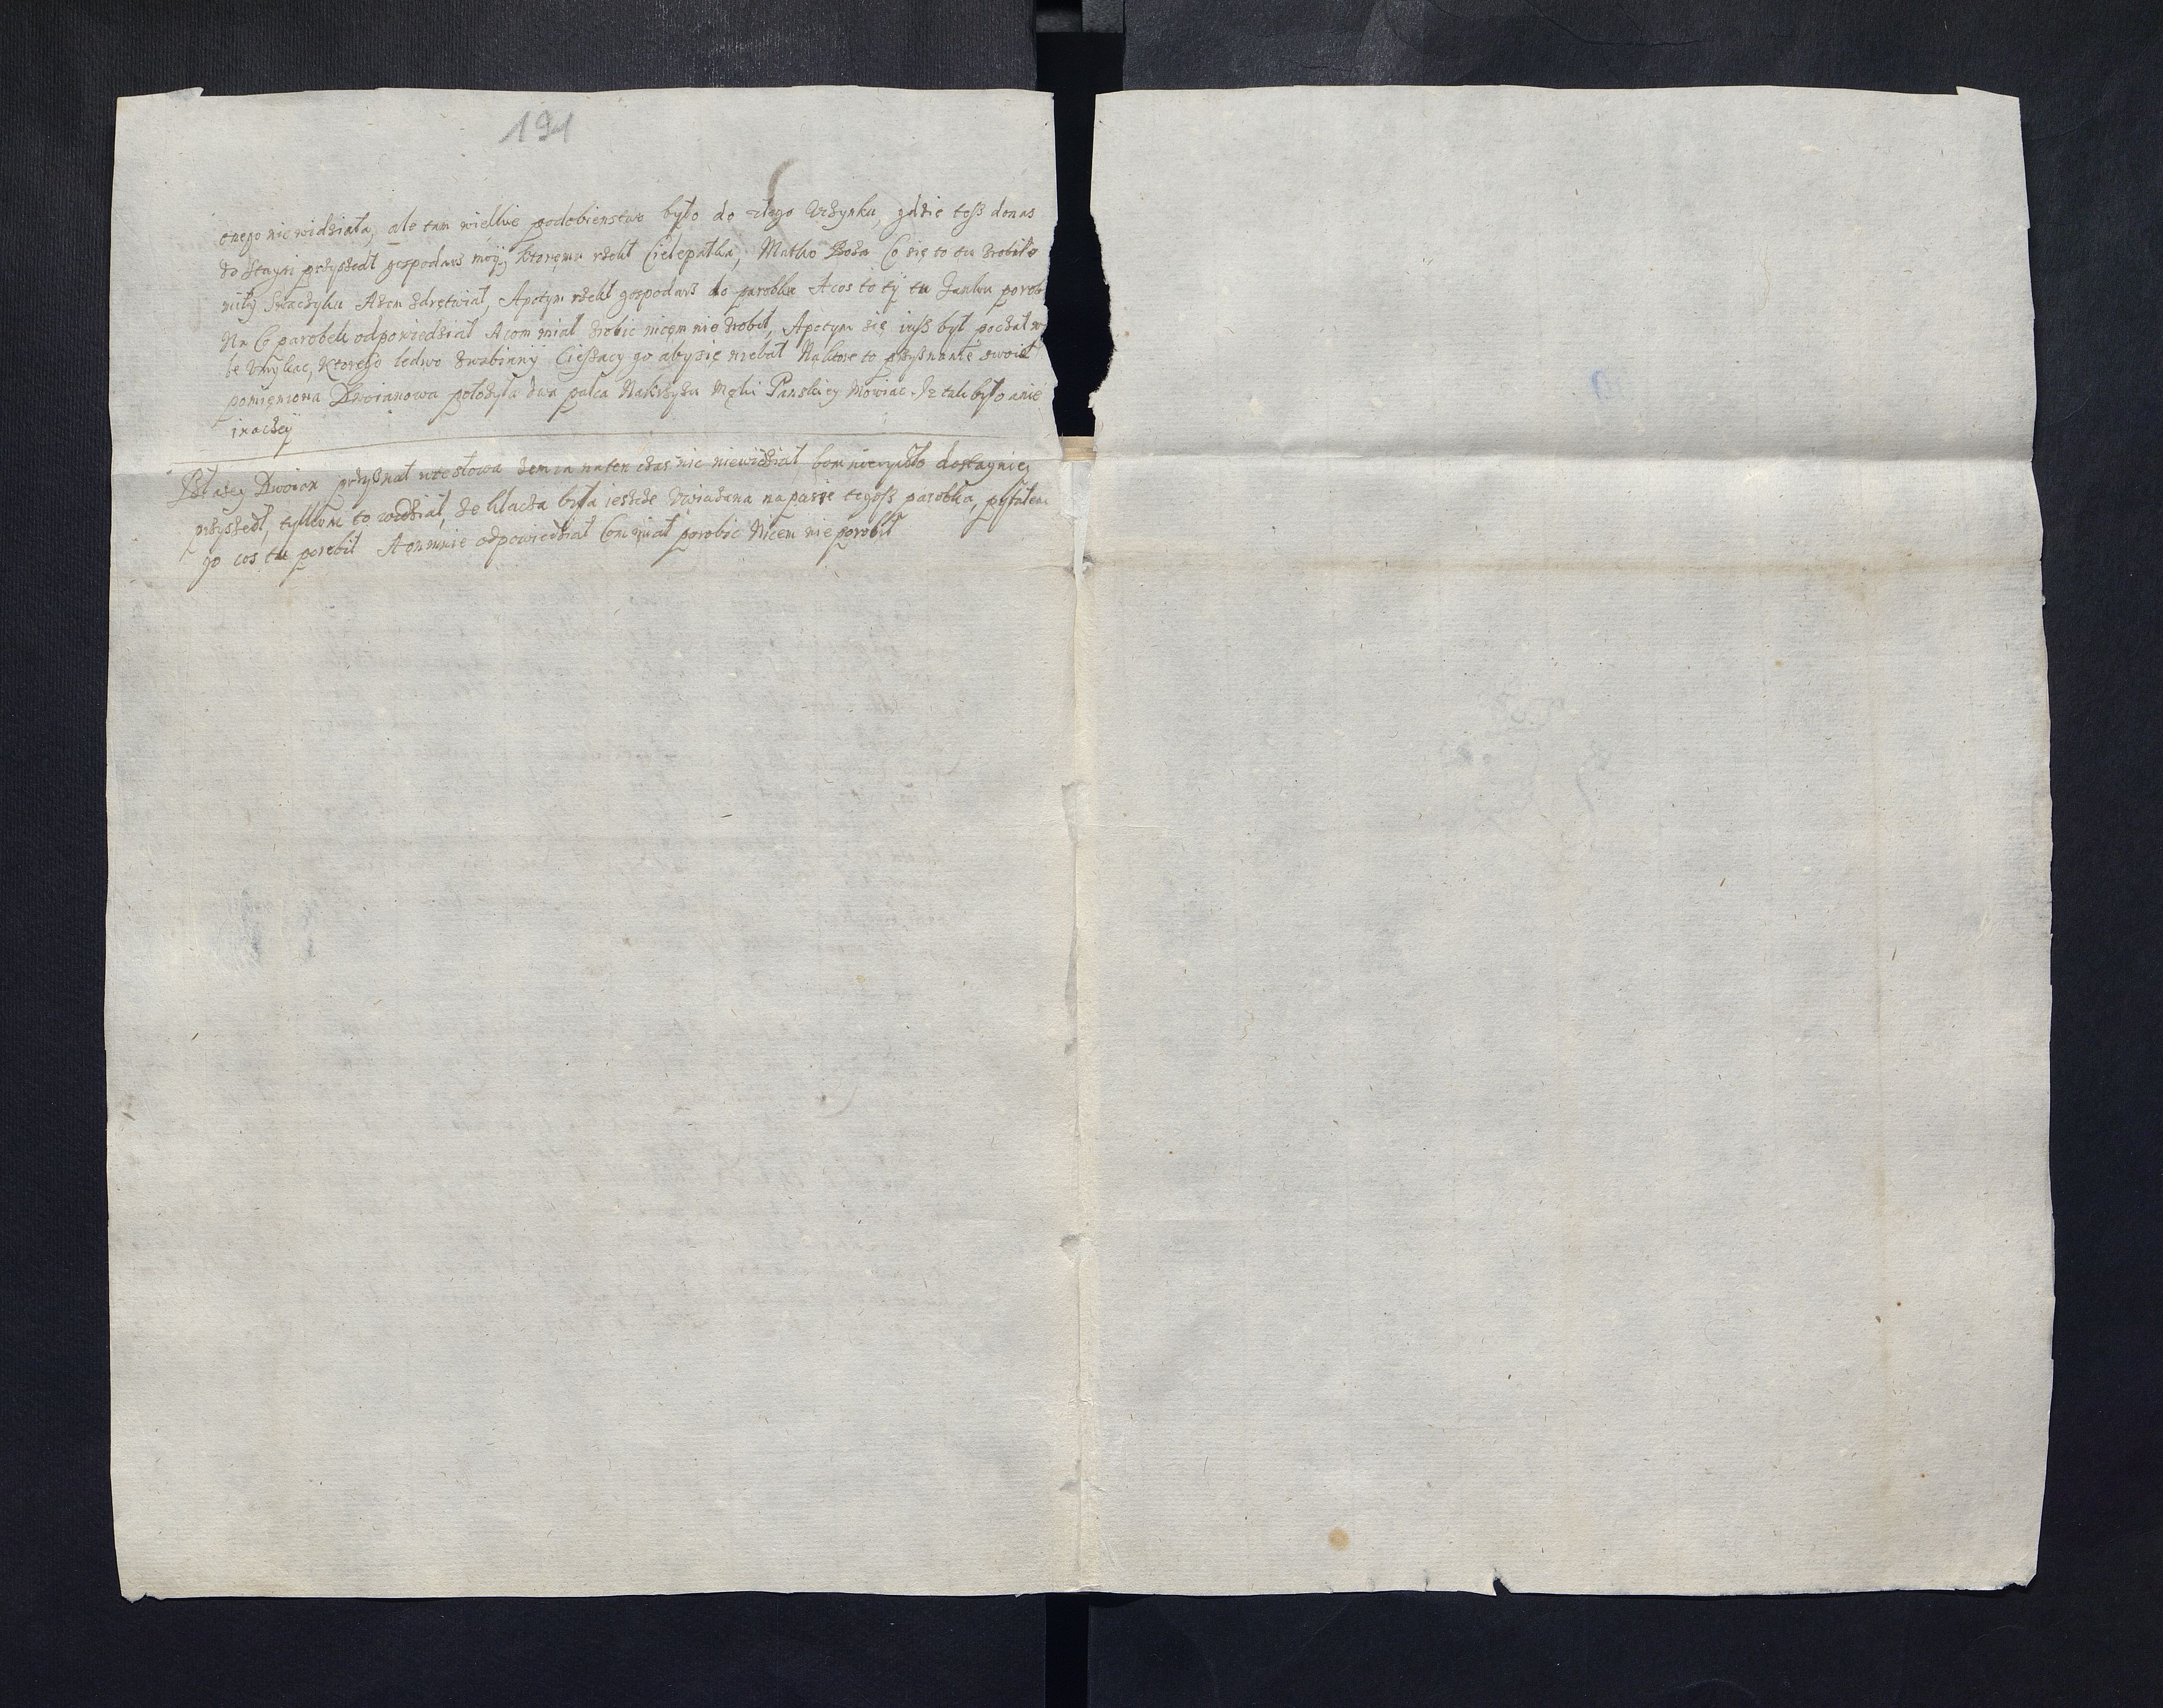 191
onego nie widziała, ale tam wielkie podobienstwo było do złego Vczynku, gdzie tosz donas
do stayni przyszedł gospodarz moy, ktoremu rzekł Cielepałka, Matko Boża Co się to tu zrobiło
miły Azem zdrętwiał, Apotym rzekł gospodarz do parobka A cos to ty tu Janku porob
Na Co parobek odpowiedział A com miał zrobic nicem nie zrobił, Apotym się iusz był poczał
Vmykac, ktorego ledwo zwabiany Cieszacy go aby się niebał Naktore to przyznanie swoie
pomieniona Dwoianowa położyła dwa palca Nakrzyżu Męki Panskiey Mowiac Iz tak było a nie
inaczey
Błazey Dwoian przyznał wte słowa zem ia naten czas nic niewidział, bom nierychło do stayniey
przyszedł, tylkom to widział, ze klacza była ieszcze Vwiazana na pasie tegosz parobka, pytałem
go cos tu porobił A on mnie odpowiedział Com miał porobic Nicem nie porobił